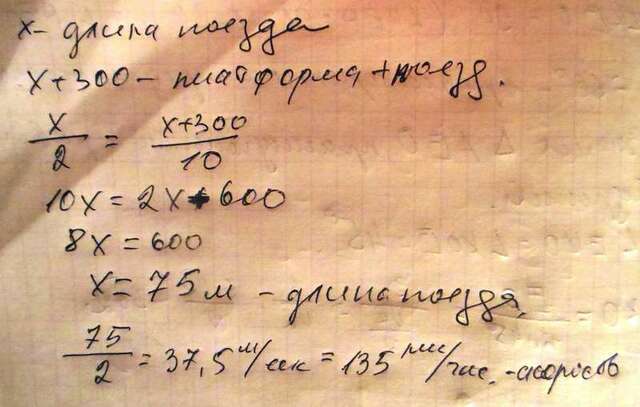 x - длина поезда
x+300 - платформа + поезд.
x/2 = x+300/10
10x = 2x + 600
8x = 600
x = 75 м - длина поезда.
75/2 = 37,5 м/сек = 135 км/час. - скорость